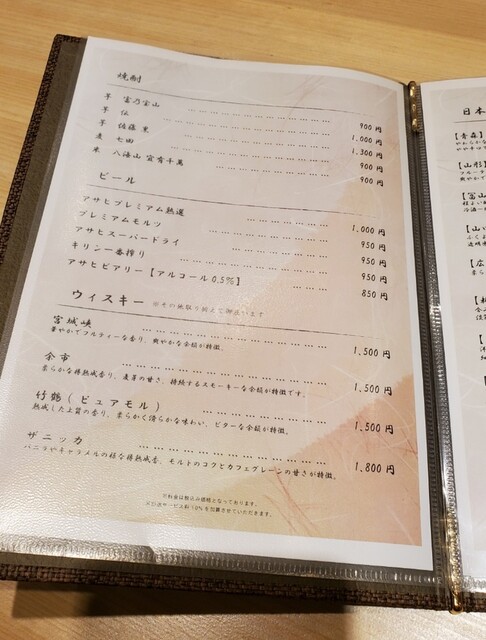 焼酎
芋 富乃宝山 … … … … … … … … … 900 円
芋 伝 … … … … … … … … … 1,000 円
芋 佐藤 黒 … … … … … … … … … 1,300 円
麦 七田 … … … … … … … … … 900 円
米 八海山 宜有千萬 … … … … … … 900 円
ビール
アサヒプレミアム熟選 … … … … … … 1,000 円
プレミアムモルツ … … … … … … 950 円
アサヒスーパードライ … … … … … … 950 円
キリン一番搾り … … … … … … 950 円
アサヒビアリー【アルコール0.5%】 … … … … 850 円
ウィスキー ※その他取り揃えて御座います
宮城峡 … … … … … … … … … 1,500 円
華やかでフルーティーな香り、爽やかな余韻が特徴。
余市 … … … … … … … … … 1,500 円
柔らかな樽熟成香、麦芽の甘さ、持続するスモーキーな余韻が特徴です。
竹鶴(ピュアモルト) … … … … … … 1,500 円
熟成した上質の香り、柔らかく滑らかな味わい、ビターな余韻が特徴。
ザニッカ … … … … … … … … … 1,800 円
バニラやキャラメルの様な樽熟成香、モルトのコクとカフェグレーンの甘さが特徴。
※料金は税込み価格となっております。
※別途サービス料10%を加算させていただきます。
日本
【青森】
【山形】
【富山
【山
【広